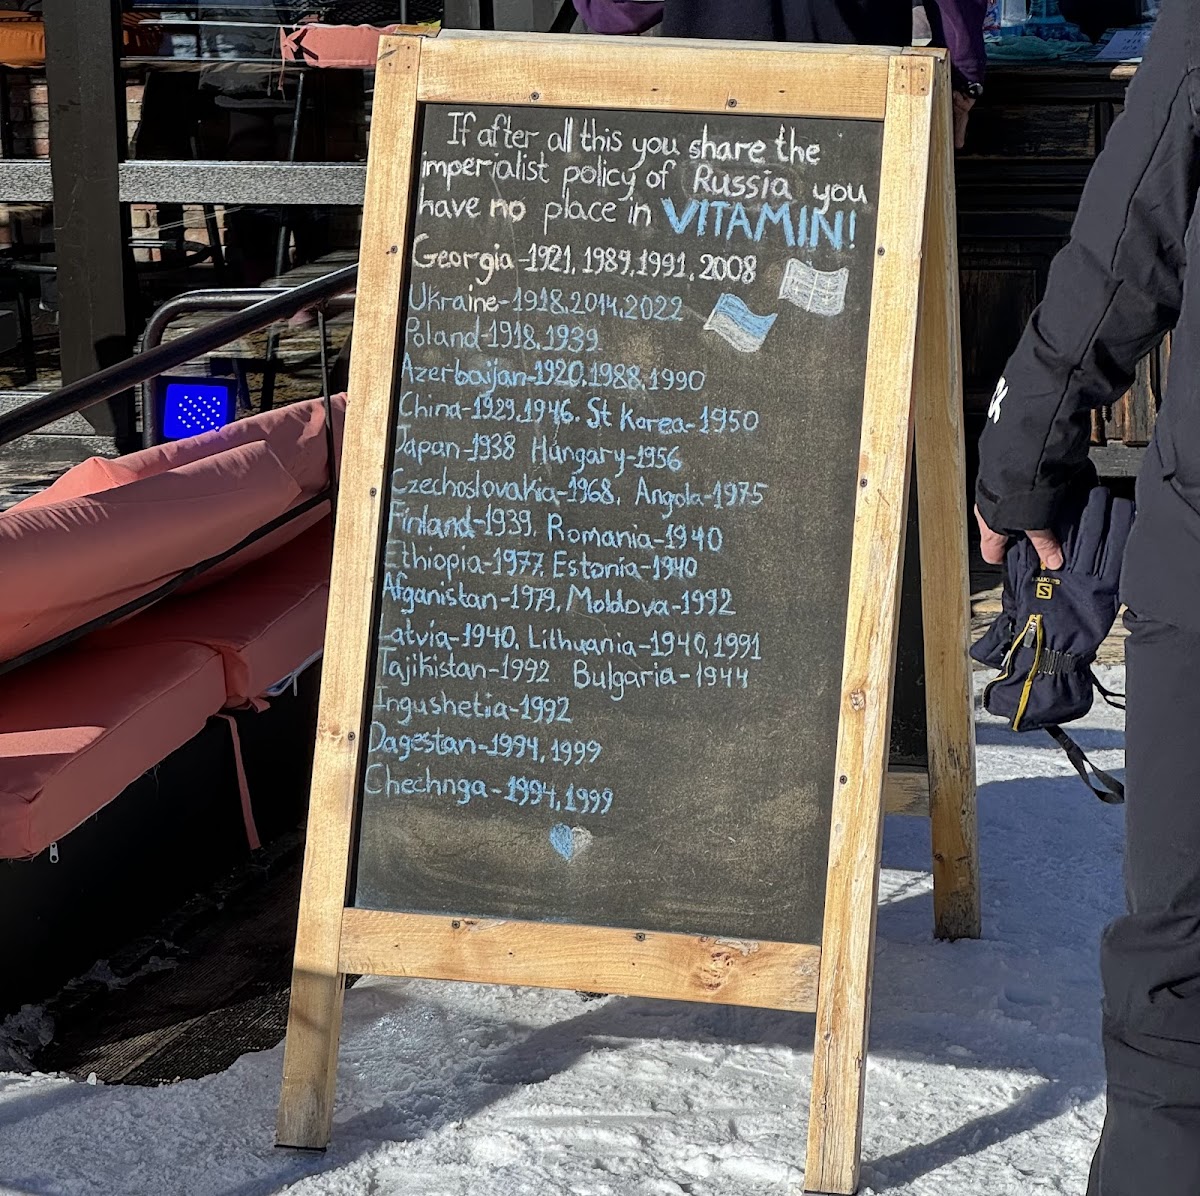 If after all this you share the
imperialist policy of Russia you
have no place in VITAMIN!
Georgia-1921, 1989,1991, 2008
Ukraine-1918,2014,2022
Poland-1918,1939
Azerbaijan-1920,1988,1990
China-1929,1946. St Korea-1950
Japan-1938 Hungary-1956
Czechoslovakia-1968, Angola-1975
Finland-1939, Romania-1940
Ethiopia-1977, Estonia-1940
Afganistan-1979, Moldova-1992
Latvia-1940, Lithuania-1940,1991
Tajikistan-1992 Bulgaria-1944
Ingushetia-1992
Dagestan-1994,1999
Chechnga-1994,1999